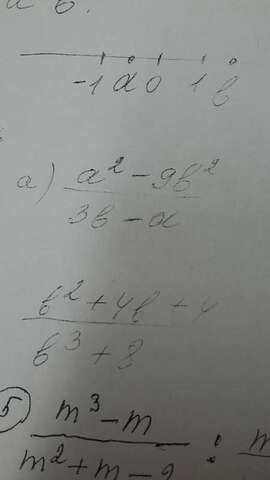 -1 a 0 1 b
а) a² - 9b²
3b - a
b² + 4b + 4
b³ + 8
5 m³ - m :
m² + m - 2